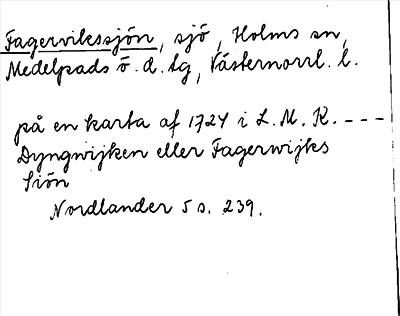 Fagervikssjön, sjö, Holms sn,
Medelpads ö. d. tg, Västernorrl. l.
på en karta af 1724 i L. M. K. ---
Dyngwijken eller Fagerwijks
Siön
Nordlander 5 s. 239.